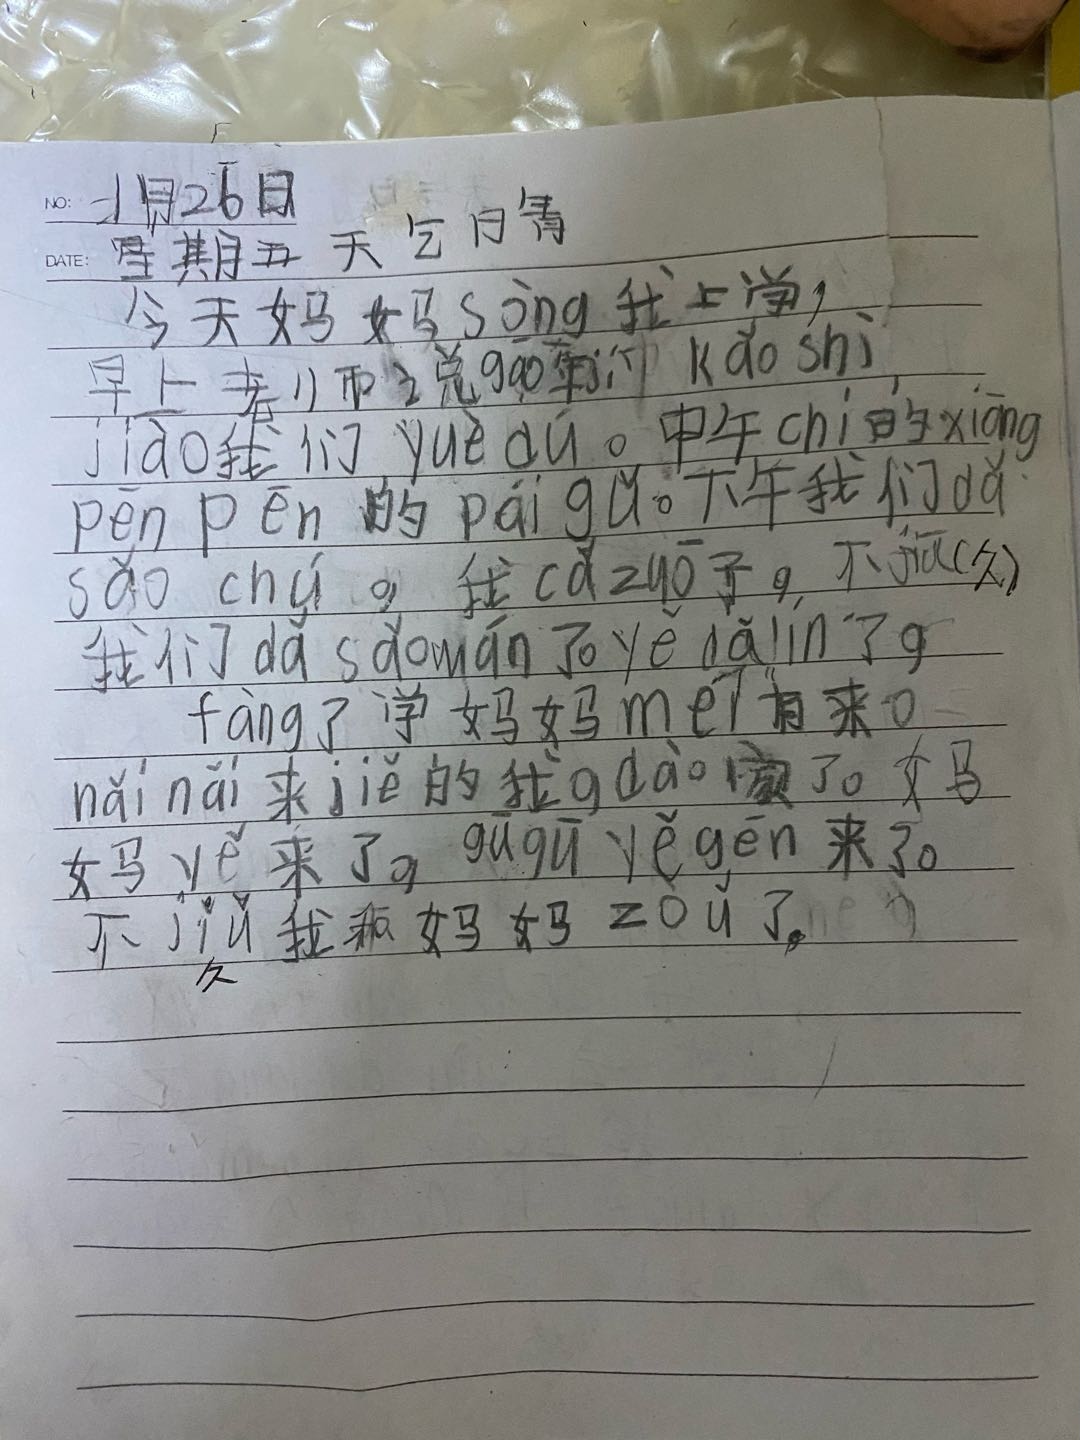 NO: 1月26日
DATE: 星期五 天乞日青
今天妈妈sòng我上学,
早上老师说 kǎo shì
jiāo我们 yuè dú。中午chī的xiāng
pēn pēn 的 pái gǔ。下午我们dǎ
sǎo chú, 我cā zuō子, 不jiǔ(久)
我们dǎ sǎo wán 了。yě 了,
fàng了学 妈妈méi有来。
nǎi nǎi 来jiě的我,dào家了。妈
妈 yě 来了, gū gū yě gēn 来了。
不jiǔ我和妈妈 zǒu 了。
久